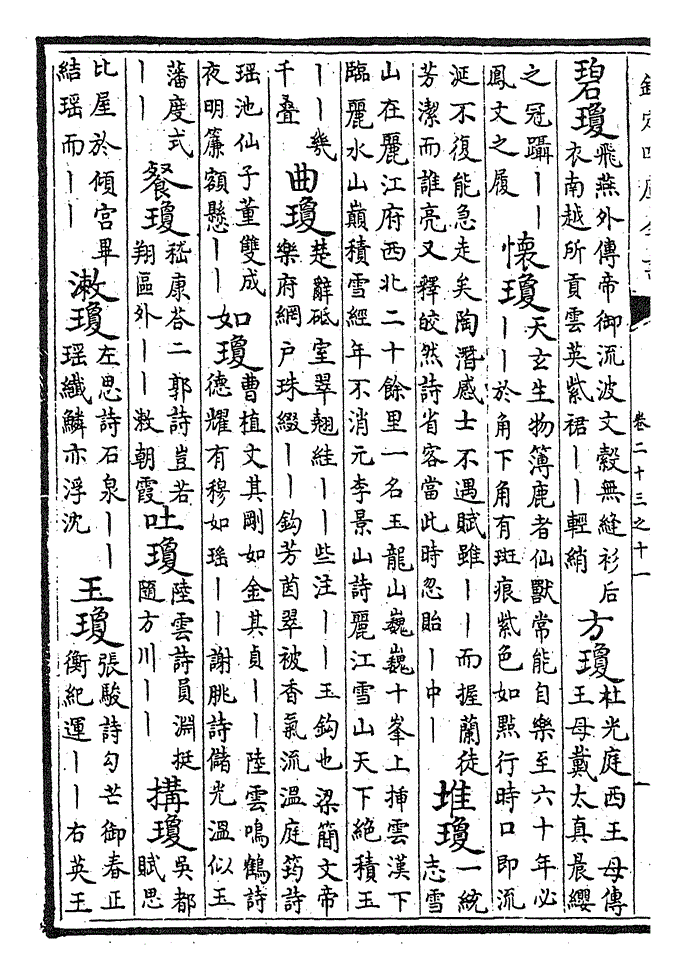 欽定四庫全書
卷二十三之十一
一
碧瓊
飛燕外傳帝御流波文縠無縫衫后
衣南越所貢雲英紫裙丨丨輕綃
方瓊
杜光庭西王母傳
王母戴太真晨纓
之冠躡丨丨
鳳文之履
懷瓊
天玄生物簿鹿者仙獸常能自樂至六十年必
丨丨於角下角有斑痕紫色如點行時口即流
涎不復能急走矣陶潛感士不遇賦雖丨丨而握蘭徒
芳潔而誰亮又釋皎然詩省客當此時忽貽丨中丨
堆瓊
一統
志雪
山在麗江府西北二十餘里一名玉龍山巍巍十峯上揷雲漢下
臨麗水山巔積雪經年不消元李景山詩麗江雪山天下絶積玉
丨丨幾
千叠
曲瓊
楚辭砥室翠翹絓丨丨些注丨丨玉鈎也梁簡文帝
樂府網户珠綴丨丨鈎芳茵翠被香氣流温庭筠詩
瑶池仙子董雙成
夜明簾額懸丨丨
如瓊
曹植文其剛如金其貞丨丨陸雲鳴鶴詩
德耀有穆如瑶丨丨謝朓詩儲光温似玉
藩度式
丨丨
餐瓊
嵇康荅二郭詩豈若
翔區外丨丨漱朝霞
吐瓊
陸雲詩員淵挺
隨方川丨丨
搆瓊
吳都
賦思
比屋於傾宫畢
結瑶而丨丨
漱瓊
左思詩石泉丨丨
瑶纎鱗亦浮沈
玉瓊
張駿詩勾芒御春正
衡紀運丨丨右英王